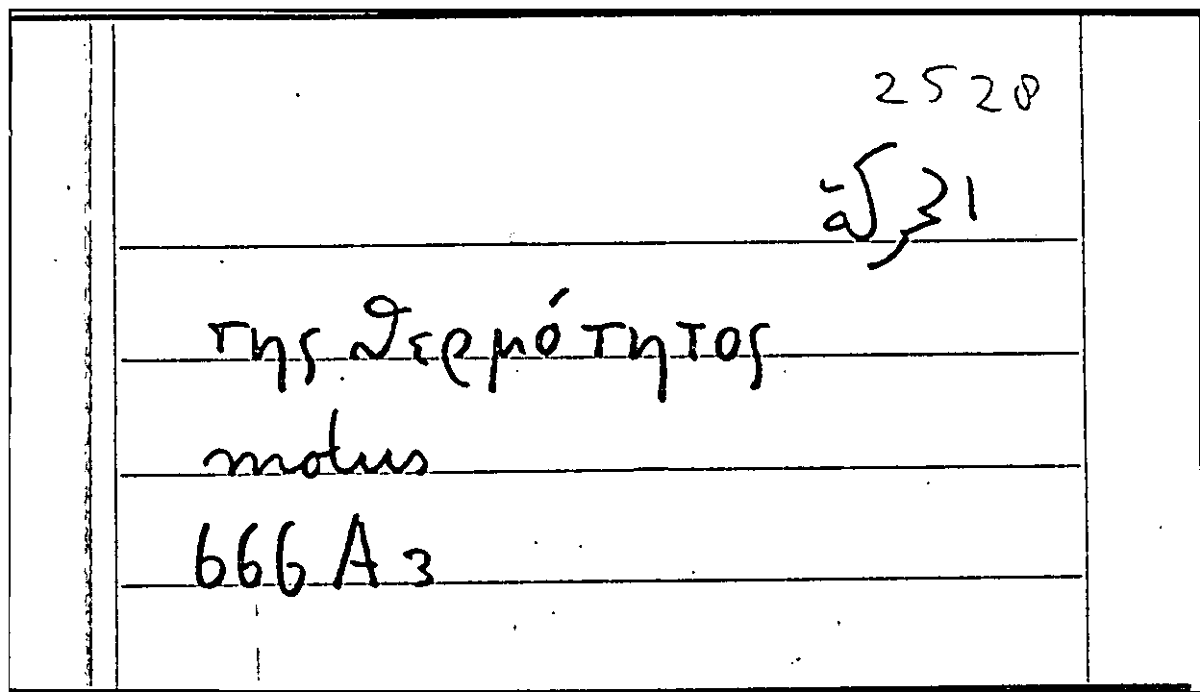 2528
της θερμότητος
motus
666 A 3